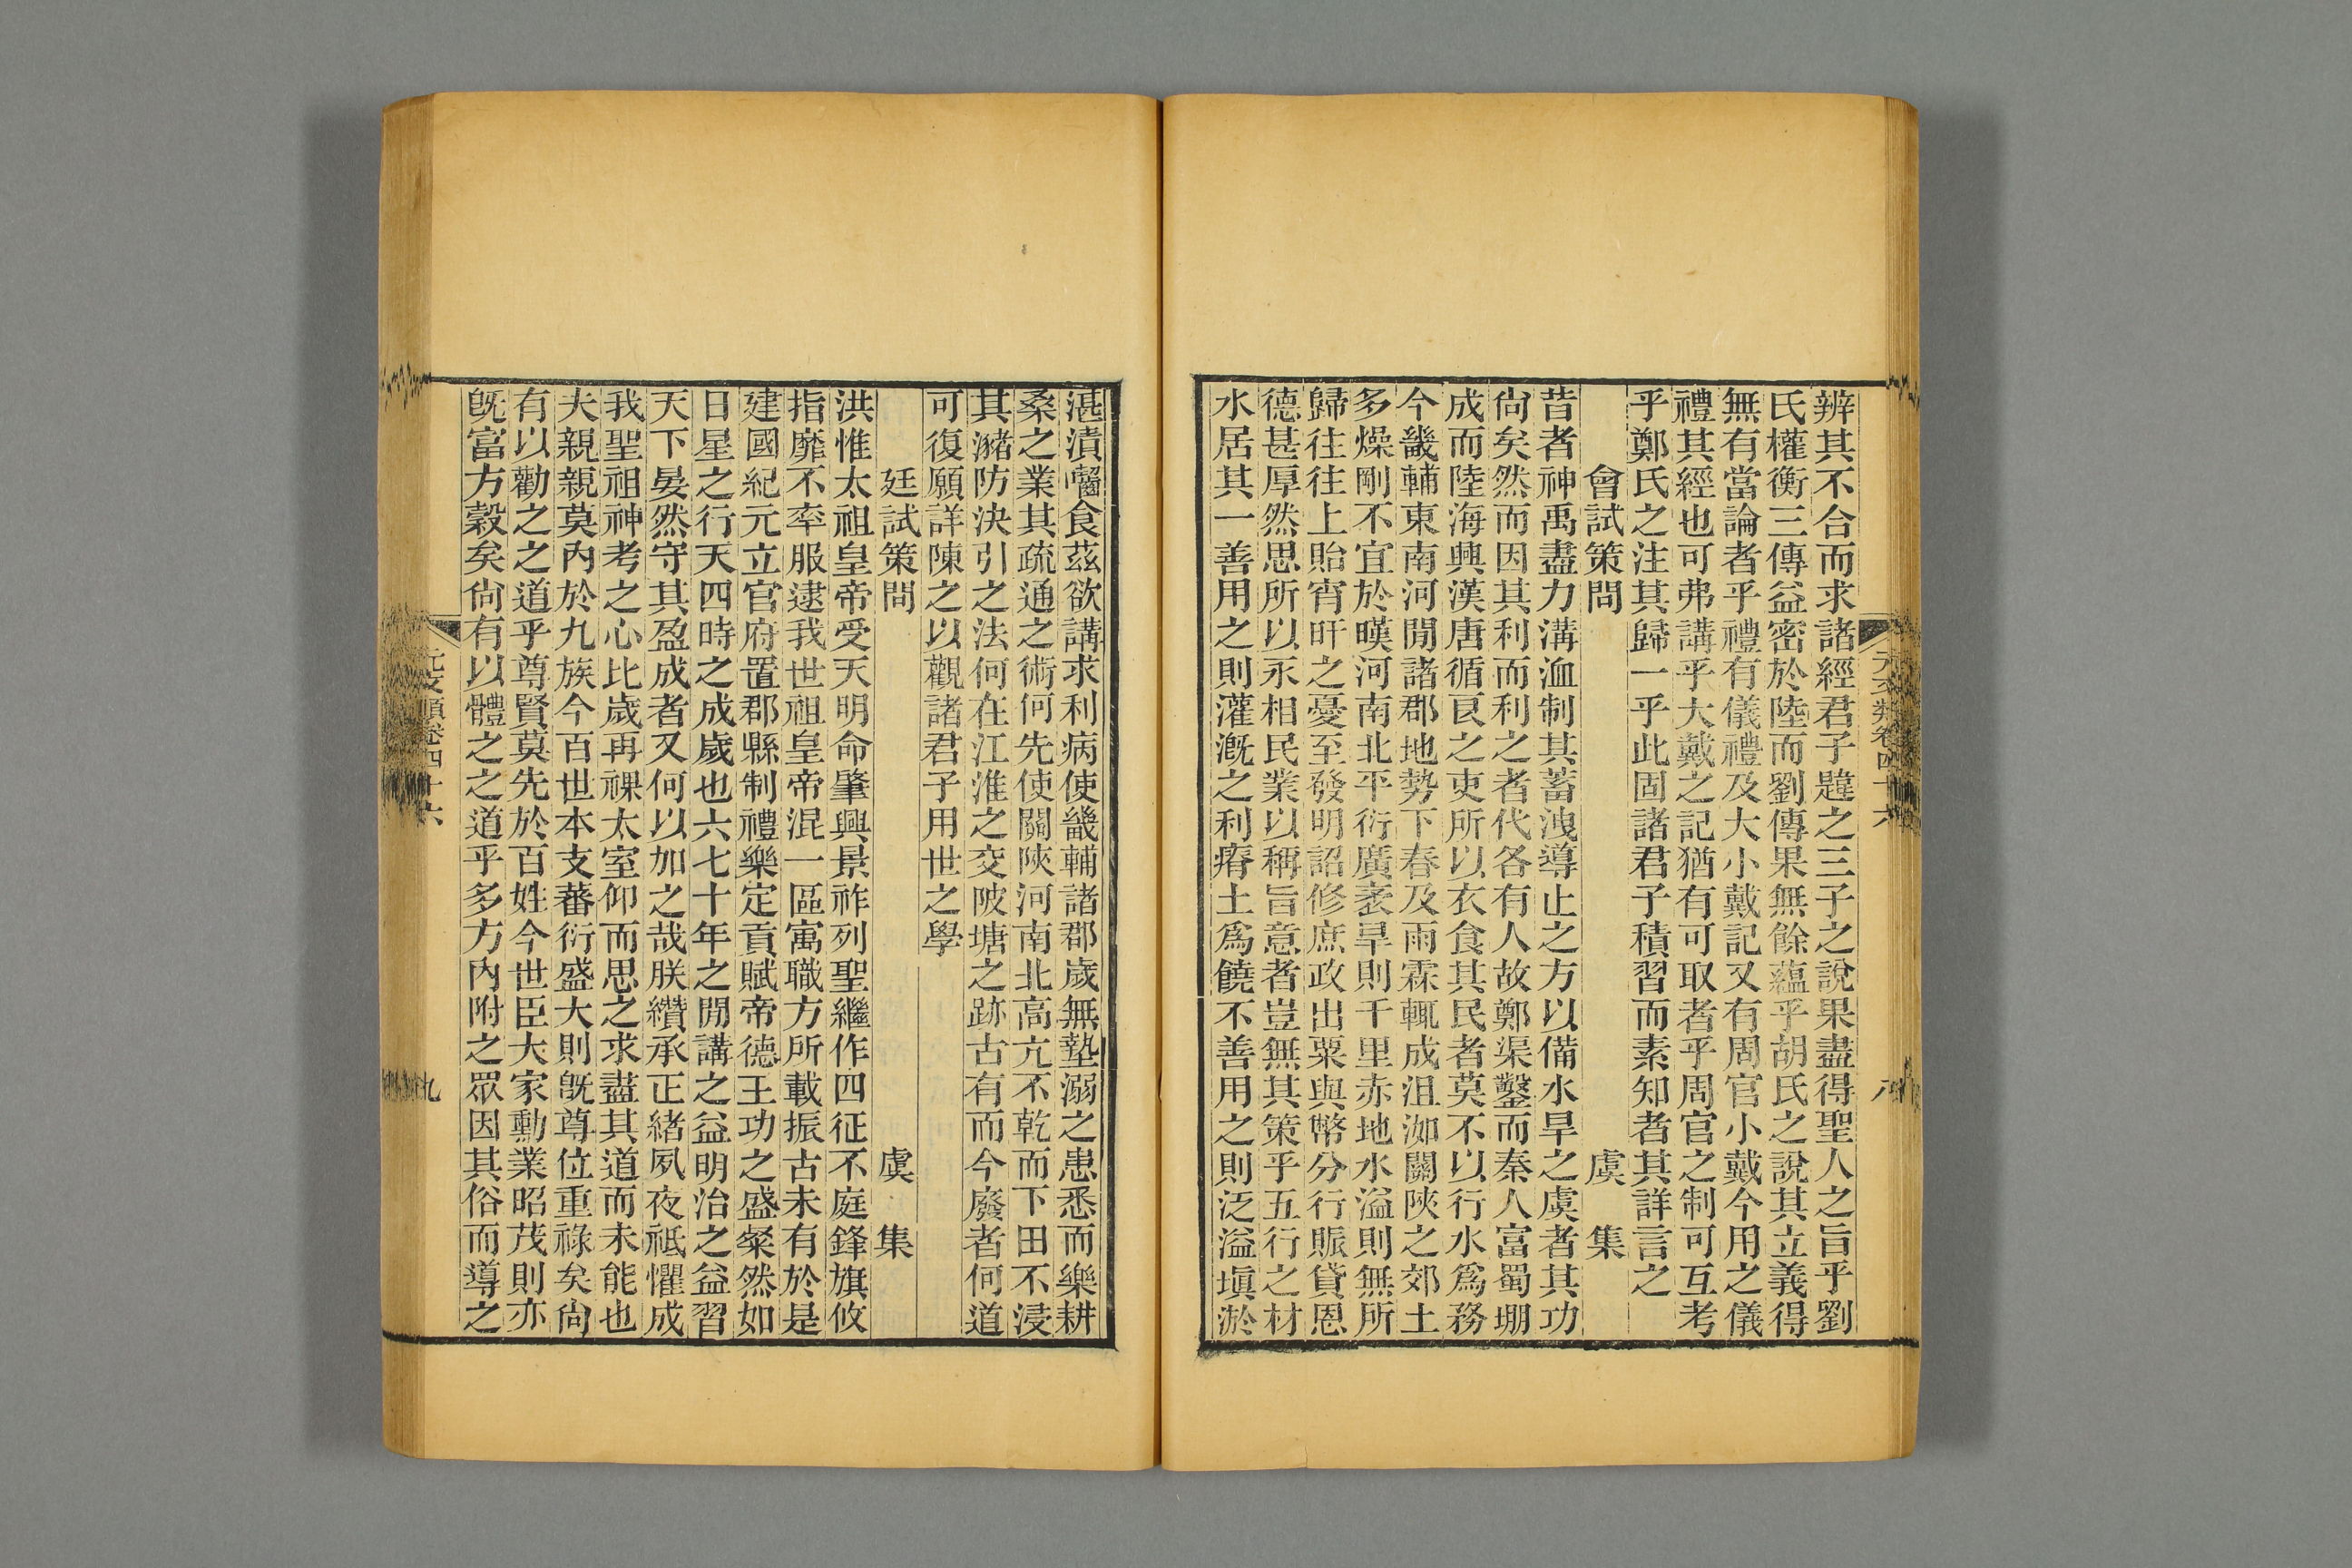 辨其不合而求諸經君子韙之三子之說果盡得聖人之旨乎劉
氏權衡三傳益密於陸而劉傳果無餘蘊乎胡氏之說其立義得
無有當論者乎禮有儀禮及大小戴記又有周官小戴今用之儀
禮其經也可弗講乎大戴之記猶有可取者乎周官之制可互考
乎鄭氏之注其歸一乎此固諸君子積習而素知者其詳言之
會試策問 虞集
昔者神禹盡力溝洫制其蓄洩導止之方以備水旱之虞者其功
尙矣然而因其利而利之者代各有人故鄭渠鑿而秦人富蜀堋
成而陸海興漢唐循良之吏所以衣食其民者莫不以行水爲務
今畿輔東南河閒諸郡地勢下春及雨霖輒成沮洳關陜之郊土
多燥剛不宜於暵河南北平衍廣袤旱則千里赤地水溢則無所
歸往往上貽宵旰之憂至發明詔修庶政出粟與幣分行賑貸恩
德甚厚然思所以永相民業以稱旨意者豈無其策乎五行之材
水居其一善用之則灌漑之利瘠土爲饒不善用之則泛溢塡淤
湛漬齧食茲欲講求利病使畿輔諸郡歲無墊溺之患悉而樂耕
桑之業其疏通之術何先使關陜河南北高亢不乾而下田不浸
其瀦防決引之法何在江淮之交陂塘之跡古有而今廢者何道
可復願詳陳之以觀諸君子用世之學
廷試策問 虞集
洪惟太祖皇帝受天明命肇興景祚列聖繼作四征不庭鋒旗攸
指靡不率服逮我世祖皇帝混一區寓職方所載振古未有於是
建國紀元立官府置郡縣制禮樂定貢賦帝德王功之盛粲然如
日星之行天四時之成歲也六七十年之閒講之益明治之益習
天下晏然守其盈成者又何以加之哉朕纘承正緒夙夜祗懼成
我聖祖神考之心比歲再祼太室仰而思之求盡其道而未能也
夫親親莫內於九族今百世本支蕃衍盛大則旣尊位重祿矣尙
有以勸之之道乎尊賢莫先於百姓今世臣大家勳業昭茂則亦
旣富方穀矣尙有以體之之道乎多方內附之眾因其俗而導之
元文類卷四十六 八
元文類卷四十六 九